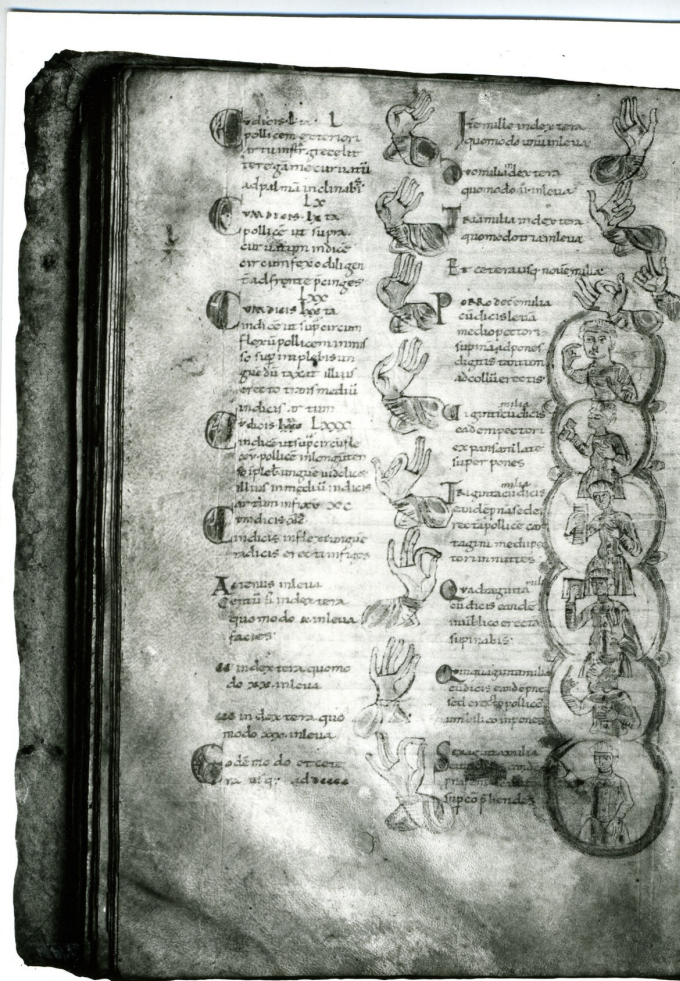 Cūdicis L ta L
pollicem exteriori
artu instar grece lit
tere gāme curuatū
ad palmā inclinabis
LX
Cum dicis lx ta
pollicē ut supra
curuatum indice
circumflexo diligen
t adfronte p̄cinges
LXX
Cum dicis lxx ta
indicē ut sup̄ circum
flexū pollicem inmis
so sup̄ inplebis un
gue dū taxat illius
erecto trans mediū
indicis artum
Cūdicis LXXX
indicē ut sup̄ circūfle
pollicē in longū ten
so īplebis ungue uidelice
illius in mediū indicis
artum infixo XC
Cum dicis
indicis inflexi ungue
radicis erecti infiges
Actenus in leua
Centū ū in dextera
quomodo x in leua
facies
cc in dextera quomo
do xx in leua
ccc in dextera quo
modo xxx in leua
Eodē modo et cete
ra usq; ad dcccc
Itē mille in dextera
quomodo unū in leua
Duo milia in dextera
quomodo ii in leua
Tria milia in dextera
quomodo tria in leua
Et cetera usq nouē milia
Porro decē milia
cū dicis leuā
medio pectori
supinā adpones
digitis tantum
ad collū erectis
milia
Uiginti cū dicis
eadem pectori
expansam late
superpones
milia
Triginta cū dicis
eadē pna sed e
recta pollicē car
tagini medii pec
toris inmittes
mil
Quadraginta
cū dicis eande
inūblico erectā
supinabis
Quinquaginta milia
cū dicis eandē pna
sed erecto pollicē
umbilico inpones
Sexaginta milia
cū dicis
sup cōp̄hendes